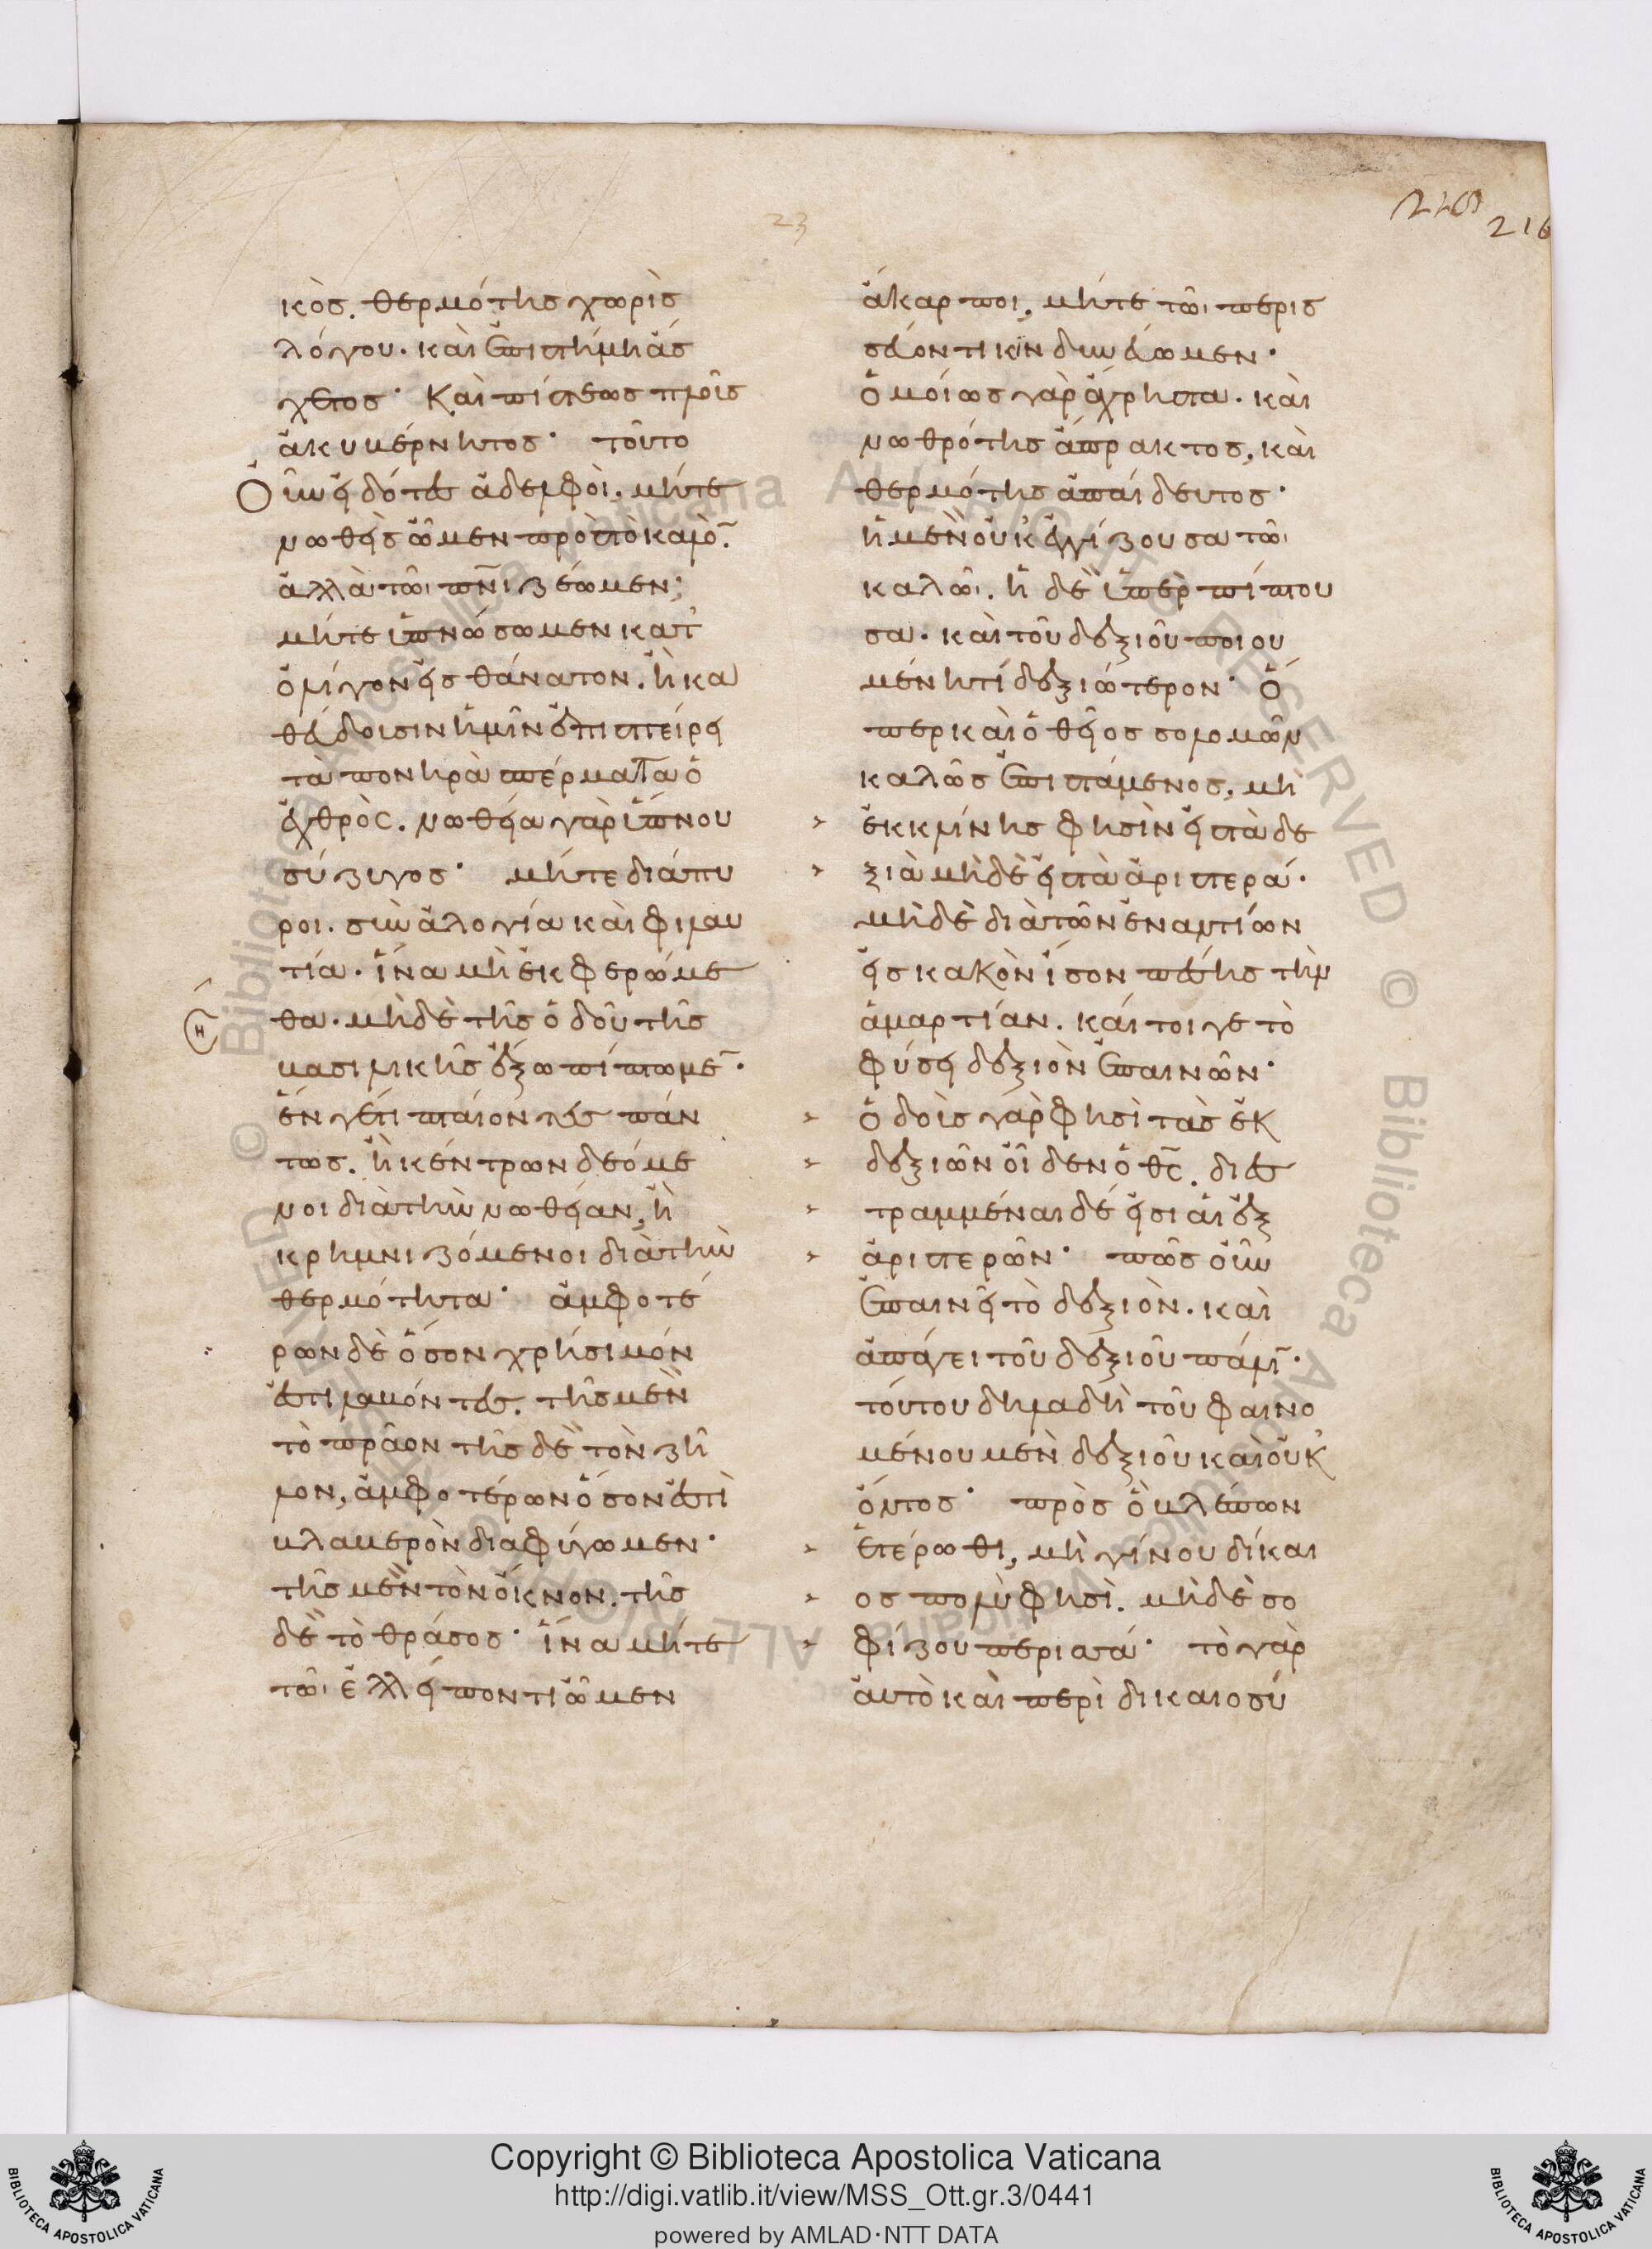 23
216
κὸσ. θερμότησ χωρὶσ
λόγου. καὶ ἐπιστήμη ἄσ
χετοσ· Καὶ πίστεωσ πλοῖσ
ἀκυβέρνητοσ· τοῦτο
Οὖν εἰδότεσ ἀδελφοὶ. μήτε
νωθεῖσ ὦμεν πρὸσ τὸ καλὸ̄.
ἀλλὰ τῶι πν̄ι ζέωμεν·
μήτε ὑπνώσωμεν κατ'
ὀλίγον εἰσ θάνατον. ἢ κα
θεύδουσιν ἡμῖν ἐπισπείρει
τὰ πονηρὰ σπέρματα ὁ
ἐχθρὸσ. νωθεία γὰρ ὕπνου
σύζυγοσ· μήτε διάπυ
ροι. σὺν ἀλογία καὶ φιλαυ
τία. ἵνα μὴ ἐκφερώμε
θα. μὴ δὲ τῆσ ὁδοῦ τῆσ
βασιλικῆσ ἔξω πίπτωμε̄·
ἕν γέ τι πταίοντεσ πάν
τωσ. ἢ κέντρων δεόμε
νοι διὰ τὴν νωθείαν, ἢ
κρημνιζόμενοι διὰ τὴν
θερμότητα· ἀμφοτέ
ρων δὲ ὅσον χρήσιμόν
ἐστι λαβόντεσ. τῆσ μὲν
τὸ πρᾶον τῆσ δὲ τὸν ζῆ
λον, ἀμφοτέρων ὅσον ἐστὶ
βλαβερὸν διαφύγωμεν·
τῆσ μὲν τὸν ὄκνον. τῆσ
δὲ τὸ θράσοσ· ἵνα μήτε
τῶι ἐλλείποντι ὦμεν
ἄκαρποι, μήτε τῶι περισ
σεύοντι κινδυνεύωμεν·
ὁμοίωσ γὰρ ἄχρηστα. καὶ
νωθρότησ ἄπρακτοσ, καὶ
θερμότησ ἀπαίδευτοσ·
ἡ μὲν οὐκ ἐγγίζουσα τῶι
καλῶι. ἡ δὲ ὑπερπίπτου
σα. καὶ τοῦ δεξιοῦ ποιου
μένη τί δεξιώτερον· ὅ
περ καὶ ὁ θεῖοσ σολομῶν
καλῶσ ἐπιστάμενοσ, μὴ
ἐκκλίνησ φησὶν εἰσ τὰ δε
ξιὰ μὴ δὲ εἰσ τὰ ἀριστερά·
μὴ δὲ διὰ τῶν ἐναντίων
εἰσ κακὸν ἴσον πέσησ τὴν
ἁμαρτίαν. καίτοι γε τὸ
φύσει δεξιὸν ἐπαινῶν·
ὁδοὺσ γὰρ φησὶ τὰσ ἐκ
δεξιῶν οἶδεν ὁ θ̄σ. διεσ
τραμμέναι δέ εἰσι αἱ ἐξ
ἀριστερῶν· πῶσ οὖν
ἐπαινεῖ τὸ δεξιὸν. καὶ
ἀπάγει τοῦ δεξιοῦ πάλῑ·
τούτου δηλαδὴ τοῦ φαινο
μένου μὲν δεξιοῦ καὶ οὐκ
ὄντοσ· πρὸσ ὃ βλέπων
ἑτέρωθι, μὴ γίνου δίκαι
οσ πολὺ φησὶ. μὴ δὲ σο
φίζου περισσά· τὸ γὰρ
αὐτὸ καὶ περὶ δικαιοσύ
Copyright © Biblioteca Apostolica Vaticana
http://digi.vatlib.it/view/MSS_Ott.gr.3/0441
powered by AMLAD·NTT DATA
BIBLIOTECA APOSTOLICA VATICANA
BIBLIOTECA APOSTOLICA VATICANA